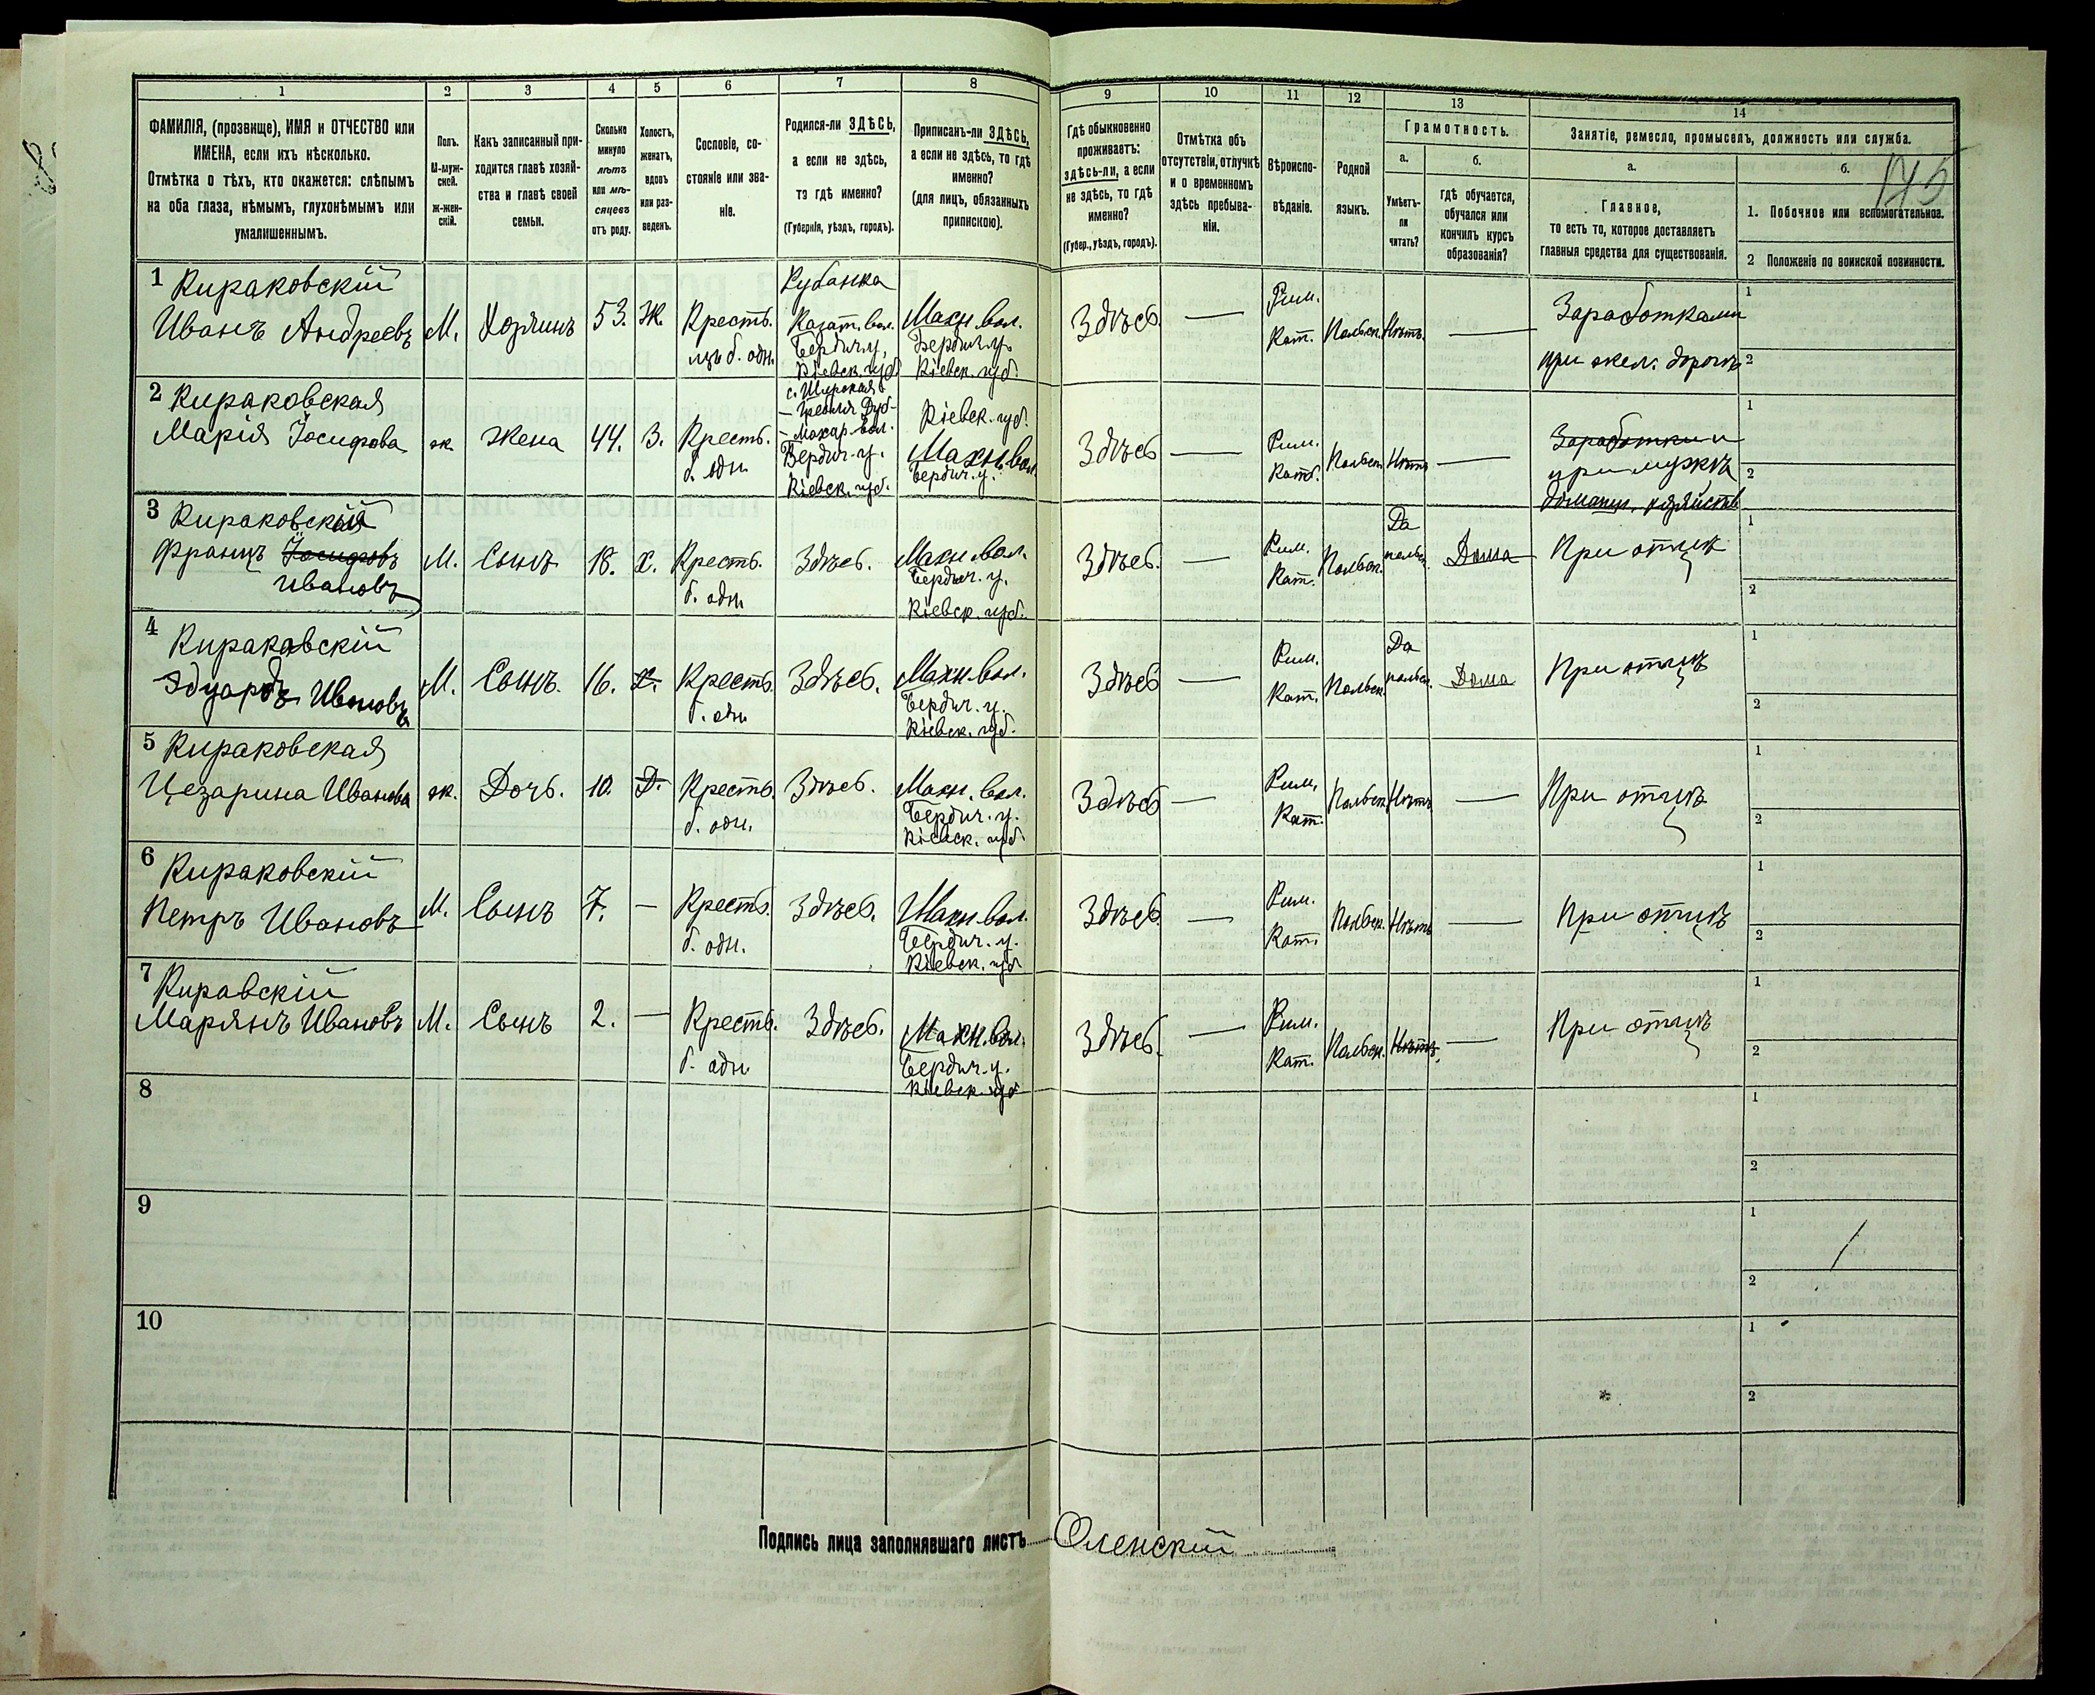 1
2
3
4
5
6
7
8
9
10
11
12
13
14
ФАМИЛІЯ, (прозвище), ИМЯ и ОТЧЕСТВО или
ИМЕНА, если ихъ нѣсколько.
Отмѣтка о тѣхъ, кто окажется: слѣпымъ
на оба глаза, нѣмымъ, глухонѣмымъ или
умалишеннымъ.
Полъ.
М-муж-
ской.
Ж-жен-
скій.
Какъ записанный при-
ходится главѣ хозяй-
ства и главѣ своей
семьи.
Сколько
минуло
лѣтъ
или мѣ-
сяцевъ
отъ роду.
Холостъ,
женатъ,
вдовъ
или раз-
веденъ.
Сословіе, со-
стояніе или зва-
ніе.
Родился-ли ЗДѢСЬ,
а если не здѣсь,
то гдѣ именно?
(Губернія, уѣздъ, городъ).
Приписанъ-ли ЗДѢСЬ,
а если не здѣсь, то гдѣ
именно?
(для лицъ, обязанныхъ
припискою).
Гдѣ обыкновенно
проживаетъ:
здѣсь-ли, а если
не здѣсь, то гдѣ
именно?
(Губер., уѣздъ, городъ).
Отмѣтка объ
отсутствіи, отлучкѣ
и о временномъ
здѣсь пребыва-
ніи.
Вѣроиспо-
вѣданіе.
Родной
языкъ.
Грамотность.
а.
Умѣетъ-
ли
читать?
б.
гдѣ обучается,
обучался или
кончилъ курсъ
образованія?
Занятіе, ремесло, промыселъ, должность или служба.
а.
Главное,
то есть то, которое доставляетъ
главныя средства для существованія.
б.
1. Побочное или вспомогательное.
2 Положеніе по воинской повинности.
175
1 Кираковскій
Иванъ Андреевъ
М.
Хозяинъ
53.
Ж.
Кресть.
изъ б. одн.
Рубанка
Казат. вол.
Бердич. у.
Кіевск. губ
Махн. вол.
Бердич. у.
Кіевск. губ.
Здѣсь
—
Рим.
Кат.
Польск.
Нѣтъ.
—
Заработками
при жел. дорогѣ
1
2
2 Кираковская
Марія Іосифова
ж.
Жена
44.
З.
Кресть.
б. одн.
с. Широкая
Гребля
Махар. вол.
Бердич. у.
Кіевск. губ.
Кіевск. губ.
Махн. вол.
Бердич. у.
Здѣсь
—
Рим.
Кат.
Польск.
Нѣтъ
—
Заработками
при мужѣ
домашн. хозяйство
1
2
3 Кираковскій
Францъ Іосифовъ
Ивановъ
М.
Сынъ
18.
Х.
Кресть.
б. одн.
Здѣсь.
Махн. вол.
Бердич. у.
Кіевск. губ.
Здѣсь.
—
Рим.
Кат.
Польск.
Да
польск.
Дома
При отцѣ
1
2
4 Кираковскій
Эдуардъ Ивановъ
М.
Сынъ.
16.
Х.
Кресть.
б. одн.
Здѣсь.
Махн. вол.
Бердич. у.
Кіевск. губ.
Здѣсь
—
Рим.
Кат.
Польск.
Да
польск.
Дома
При отцѣ
1
2
5 Кираковская
Цезарина Иванова
ж.
Дочь.
10.
Д.
Кресть.
б. одн.
Здѣсь.
Махн. вол.
Бердич. у.
Кіевск. губ
Здѣсь
—
Рим.
Кат.
Польск.
Нѣтъ
—
При отцѣ
1
2
6 Кираковскій
Петръ Ивановъ
М.
Сынъ
7.
—
Кресть.
б. одн.
Здѣсь.
Махн. вол.
Бердич. у.
Кіевск. губ
Здѣсь
—
Рим.
Кат.
Польск.
Нѣтъ
—
При отцѣ
1
2
7 Киравскій
Марянъ Ивановъ
М.
Сынъ
2.
—
Кресть.
б. одн.
Здѣсь.
Махн. вол.
Бердич. у.
Кіевск. губ
Здѣсь.
—
Рим.
Кат.
Польск.
Нѣтъ.
—
При отцѣ
1
2
8
1
2
9
1
2
10
1
2
Подпись лица заполнявшаго листъ Оленскій